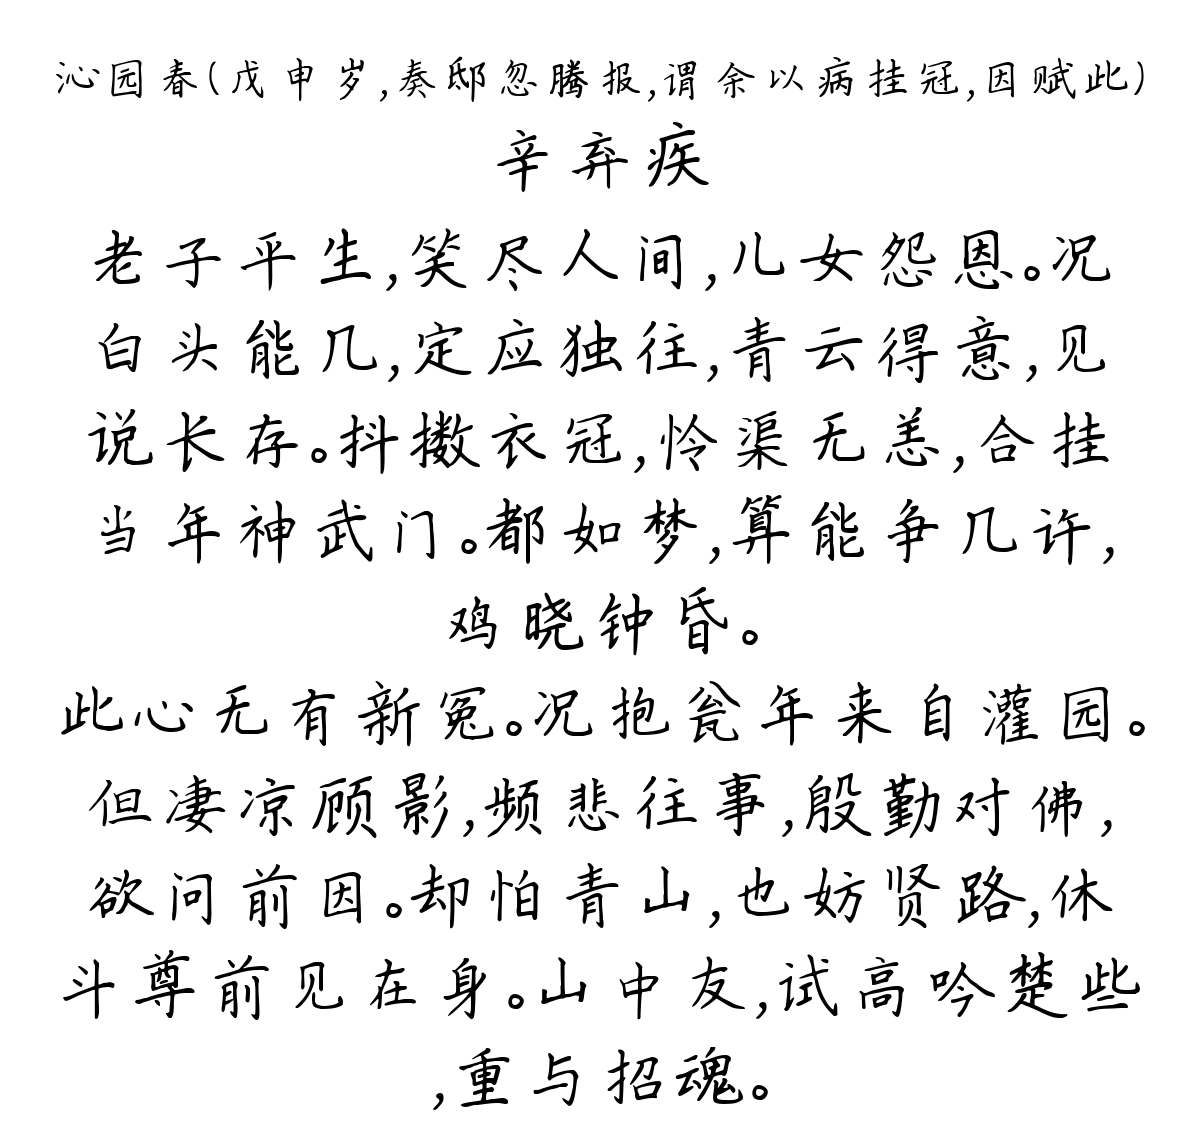 沁园春(戊申岁,奏邸忽腾报,谓余以病挂冠,因赋此)
辛弃疾
老子平生,笑尽人间,儿女怨恩。况
白头能几,定应独往,青云得意,见
说长存。抖擞衣冠,怜渠无恙,合挂
当年神武门。都如梦,算能争几许,
鸡晓钟昏。
此心无有新冤。况抱瓮年来自灌园。
但凄凉顾影,频悲往事,殷勤对佛,
欲问前因。却怕青山,也妨贤路,休
斗尊前见在身。山中友,试高吟楚些
,重与招魂。